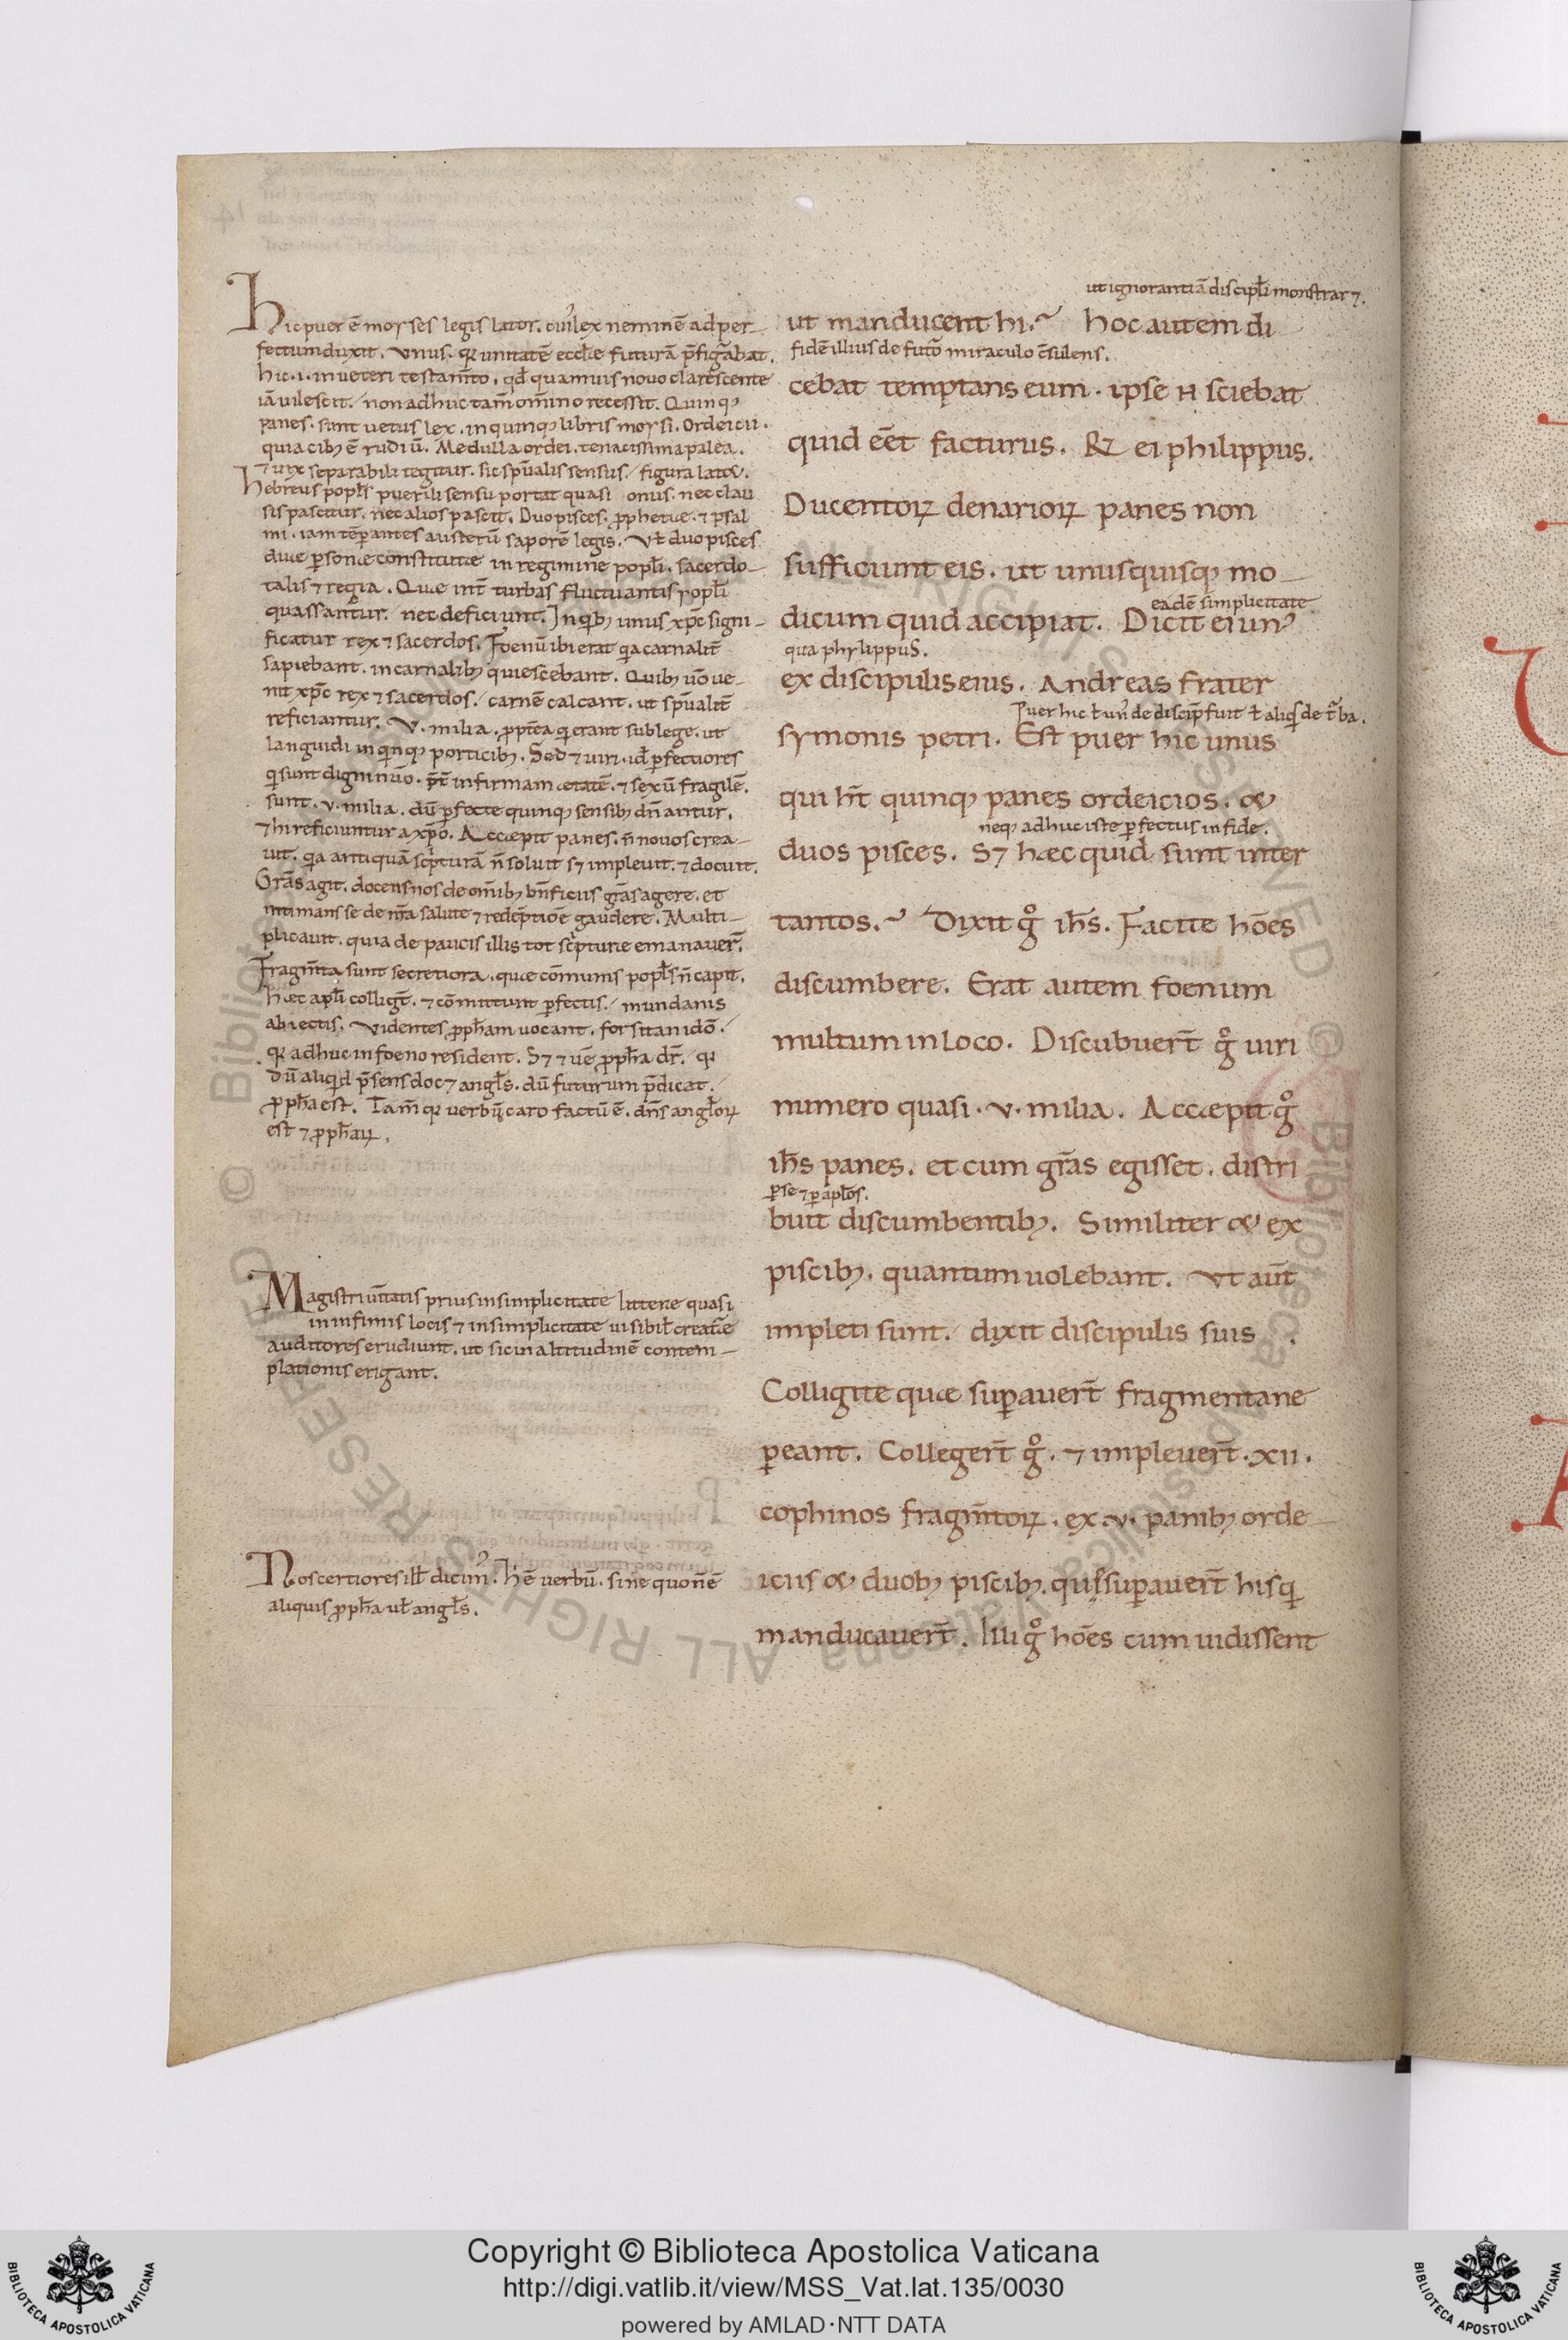 Hic puer ē moyses legis lator. cui᷒ lex neminē ad per-
fectum duxit. Vnus. qꝛ unitatē eccl̄ie futurā p̄figurabat.
hic .i. in ueteri testam̄to. qđ quamuis nouo clarescente
iā uilescit. non adhuc tam̄ om̄ino recessit. Quinqꝫ
panes. sunt uetus lex. in quinqꝫ libris moysi. Ordeicii.
quia cibꝫ ē rudiū. Medulla ordei. tenacissima palea.
⁊ uix separabili tegitur. sic sp̄ualis sensus. figura latet.
Hebreus popl̄s puerili sensu portat quasi onus. nec clau
sis pascitur. nec alios pascit. Duo pisces. ꝓphetie. ⁊ psal
mi. iam tēperantes austerū saporē legis. Vł duo pisces
duæ ꝑsonæ constitutæ in regimine popl̄i. sacerdo-
talis ⁊ regia. Quæ int̄ turbas fluctuantis popl̄i
quassantur. nec deficiunt. In qͥbꝫ unus xp̄c signi-
ficatur rex ⁊ sacerdos. Foenū ibi erat qͥa carnalit̄
sapiebant. in carnalibꝫ quiescebant. Quibꝫ ūo ue-
nit xp̄c rex ⁊ sacerdos. carnē calcant. ut sp̄ualit̄
reficiantur. V. milia. ꝓpt̄ea qͥ erant sub lege. ut
languidi in qͥnqꝫ porticibꝫ. Sed ⁊ uiri. id̄ ꝑfectiores
qͥ sunt digni nūo. p̄t̄ infirmam ætatē. ⁊ sexū fragilē.
sunt. v. milia. dū ꝑfecte quinqꝫ sensibꝫ dn̄antur.
⁊ hi reficiuntur a xp̄o. Accæpit panes. n̄ nouos crea-
uit. qͥa antiquā scͥpturā n̄ soluit s⁊ impleuit. ⁊ docuit.
Grās agit. docens nos de om̄ibꝫ bn̄ficiis grās agere. et
intimans se de nr̄a salute ⁊ redēptioē gaudere. Multi-
plicauit. quia de paucis illis tot scͥpturæ emanauer̄.
Fragm̄ta sunt secretiora. quæ cōmunis popl̄s n̄ capit.
Hæc apl̄i colligt̄. ⁊ cōmittunt ꝑfectis. mundanis
abiectis. Videntes ꝓph̄am uocant. forsitan idō.
qꝛ adhuc in foeno resident. S⁊ ⁊ uē ꝓph̄a dr̄. qꝛ
dū aliqͥd p̄sens doc⁊ angl̄s. dū futurum p̄dicat.
ꝓph̄a est. Tam̄ qꝛ uerbū caro factū ē. dn̄s angl̄oꝝ
est ⁊ ꝓph̄aꝝ.
Magistri uītatis prius in simplicitate litteræ quasi
in infimis locis ⁊ in simplicitate uisibil̄ creat̄æ
auditores erudiunt. ut sic in altitudinē contem-
plationis erigant.
Nos certiores ill̄ dicim᷒. H̄ ē uerbū. sine quo n̄ ē
aliquis ꝓph̄a uł angl̄s.
ut ignorantiā discipl̄i monstrar⁊.
ut manducent hi. Hoc autem di
fidē illius de futꝰo miraculo c̄sulens.
cebat temptans eum. ipse n̄ sciebat
quid eēt facturus. Rꝫ ei philippus.
Ducentoꝝ denarioꝝ panes non
sufficiunt eis. ut unusquisqꝫ mo-
eadē simplicitate
dicum quid accipiat. Dicit ei un᷒
qua phylippus.
ex discipulis eius. Andreas frater
Puer hic ł un᷒ de discip̄ fuit ł aliqͥs de t̄ba.
symonis petri. Est puer hic unus
qui ht̄ quinqꝫ panes ordeicios. et
neqꝫ adhuc iste ꝑfectus in fide.
duos pisces. S⁊ hæc quid sunt inter
tantos. Dixit gͦ ih̄s. Facite hōes
discumbere. Erat autem foenum
multum in loco. Discubuer̄t gͦ uiri
numero quasi. v. milia. Accæpit gͦ
ih̄s panes. et cum grās egisset. distri
ꝑ se ⁊ ꝑ apl̄os.
buit discumbentibꝫ. Similiter et ex
piscibꝫ. quantum uolebant. Vt aūt
impleti sunt. dixit discipulis suis.
Colligite quæ suꝑauer̄t fragmenta ne
ꝑeant. Colleger̄t gͦ. ⁊ impleuer̄t. xii.
cophinos fragm̄toꝝ. ex. v. panibꝫ orde-
iciis et duobꝫ piscibꝫ. quę suꝑauer̄t his qͥ
manducauer̄t. Illi gͦ hōes cum uidissent
© Biblioteca Apostolica Vaticana ALL RIGHTS RESERVED
Copyright © Biblioteca Apostolica Vaticana
http://digi.vatlib.it/view/MSS_Vat.lat.135/0030
powered by AMLAD·NTT DATA
BIBLIOTECA APOSTOLICA VATICANA
BIBLIOTECA APOSTOLICA VATICANA